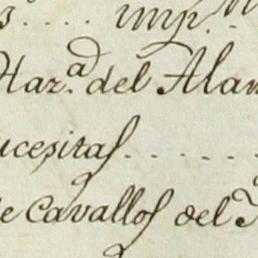 s. . . . . imp.
Haz.ᵃᵈ del Alam
ucesitas. . . . . .
de cavallos del